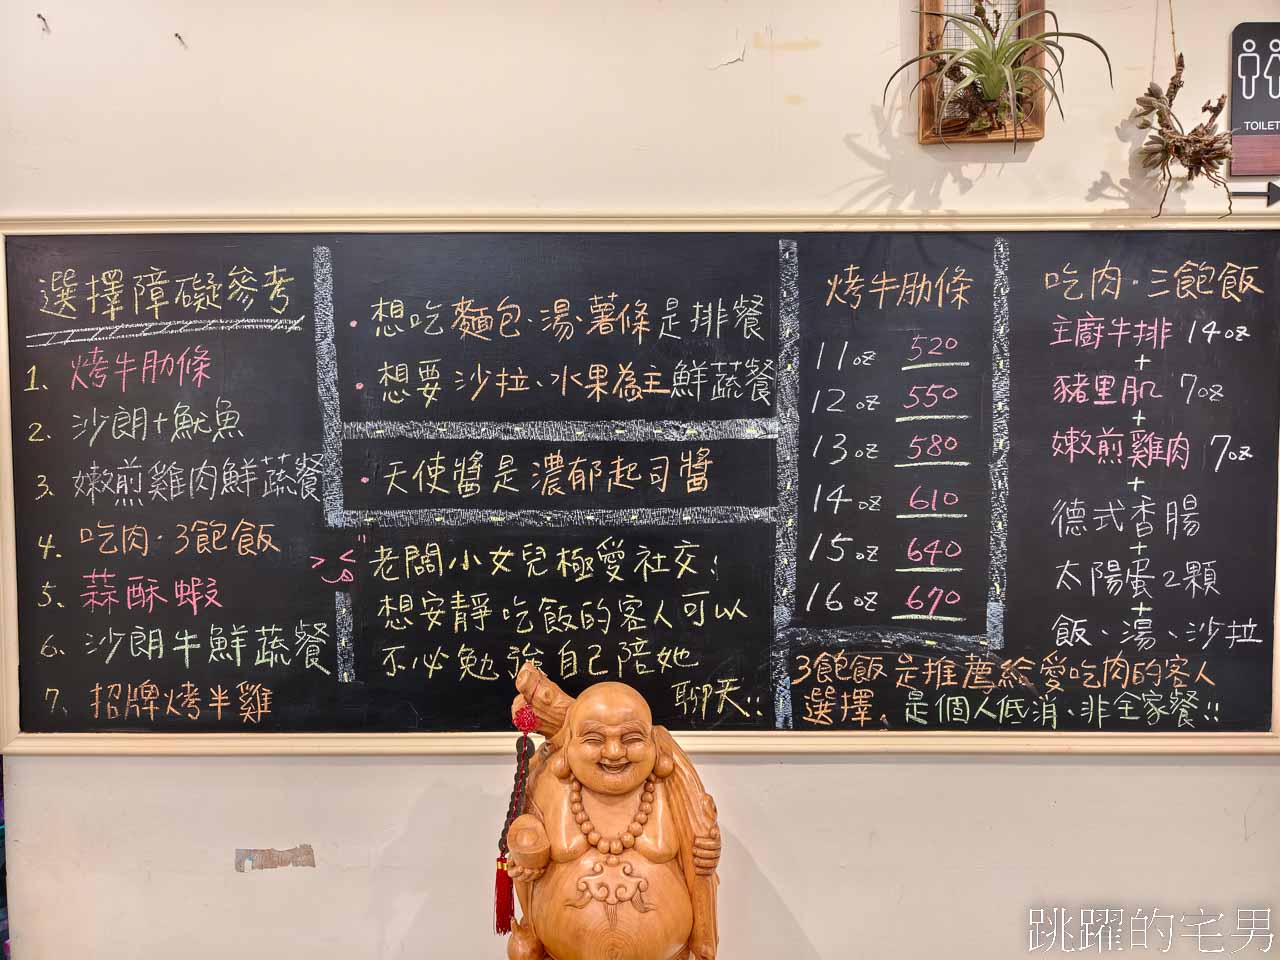 TOILET
選擇障礙參考
1. 烤牛肋條
2. 沙朗+魷魚
3. 嫩煎雞肉鮮蔬餐
4. 吃肉·3飽飯
5. 蒜酥蝦
6. 沙朗牛鮮蔬餐
7. 招牌烤半雞
·想吃麵包、湯、薯條是排餐
·想要沙拉、水果為主鮮蔬餐
·天使醬是濃郁起司醬
老闆小女兒極愛社交!
想安靜吃飯的客人可以
不必勉強自己陪她
聊天!!
烤牛肋條
11oz 520
12oz 550
13oz 580
14oz 610
15oz 640
16oz 670
吃肉·三飽飯
主廚牛排 14oz
+
豬里肌 7oz
+
嫩煎雞肉 7oz
+
德式香腸
+
太陽蛋2顆
+
飯、湯、沙拉
3飽飯是推薦給愛吃肉的客人
選擇、是個人低消、非全家餐!!
跳躍的宅男